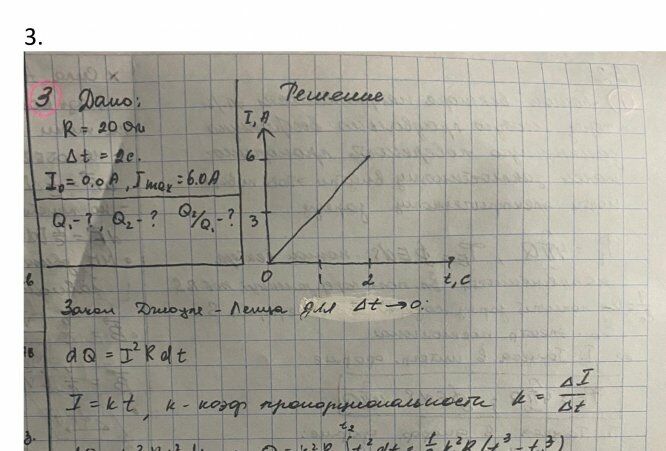 3.
3 Дано:
Решение
R = 20 Ом
Δt = 2 с.
I₀ = 0.0 A, Imax = 6.0 A
Q₁ - ?, Q₂ - ? Q₂/Q₁ - ?
I, A
6
3
0 1 2 t, c
Закон Джоуля - Ленца для Δt → 0:
dQ = I² R dt
I = kt, k - коэф пропорциональности k = ΔI/Δt
t₂
= 1/3 k² R (t³ - t₁³)